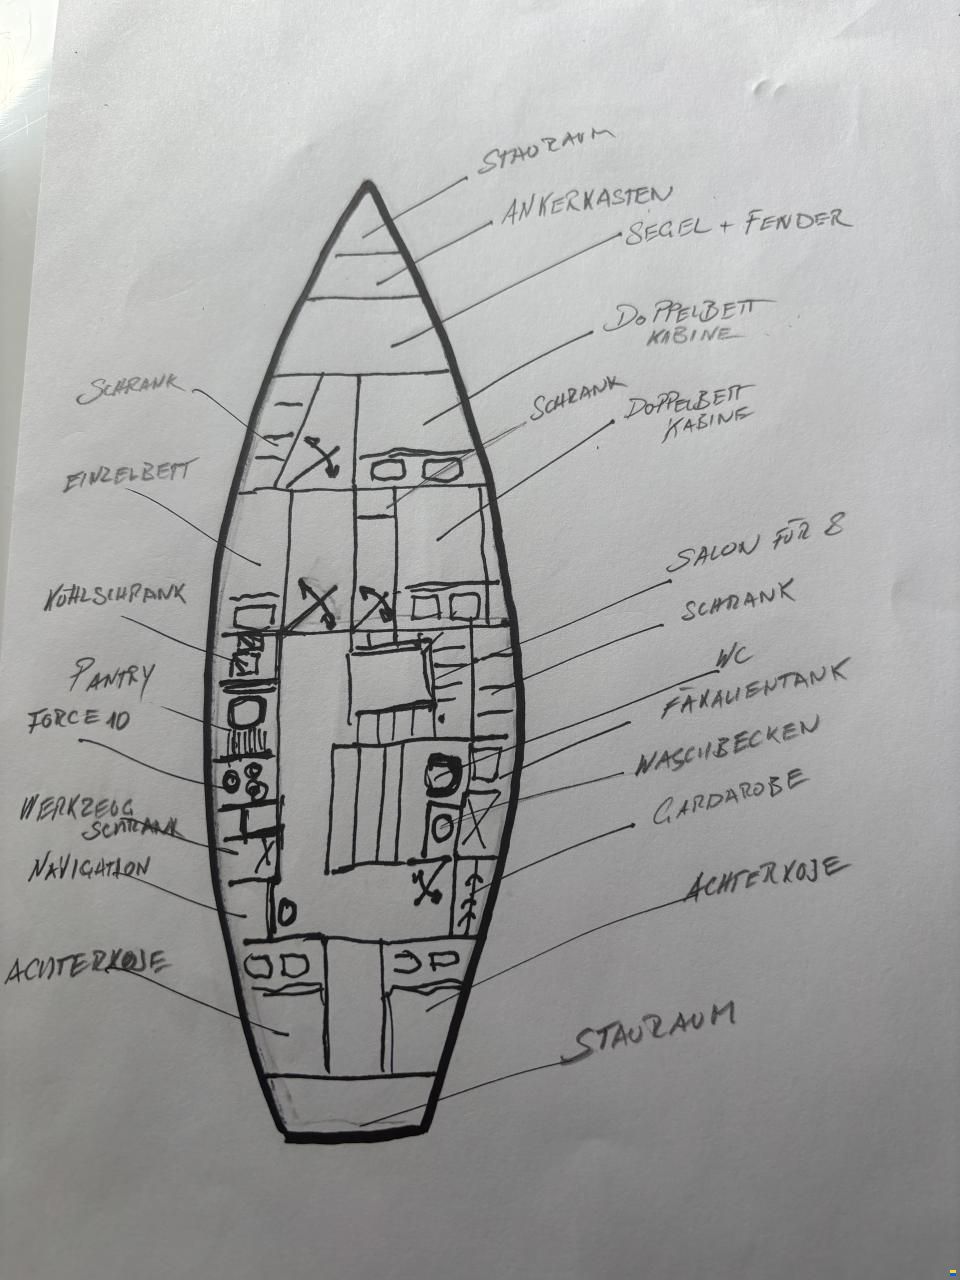 STAURAUM
ANKERKASTEN
SEGEL + FENDER
DOPPELBETT
KABINE
SCHRANK
SCHRANK
DOPPELBETT
KABINE
EINZELBETT
SALON FÜR 8
KÜHLSCHRANK
SCHRANK
WC
PANTRY
FÄKALIENTANK
FORCE 10
WASCHBECKEN
GARDAROBE
WERKZEUG
SCHRANK
NAVIGATION
ACHTERKOJE
ACHTERKOJE
STAURAUM